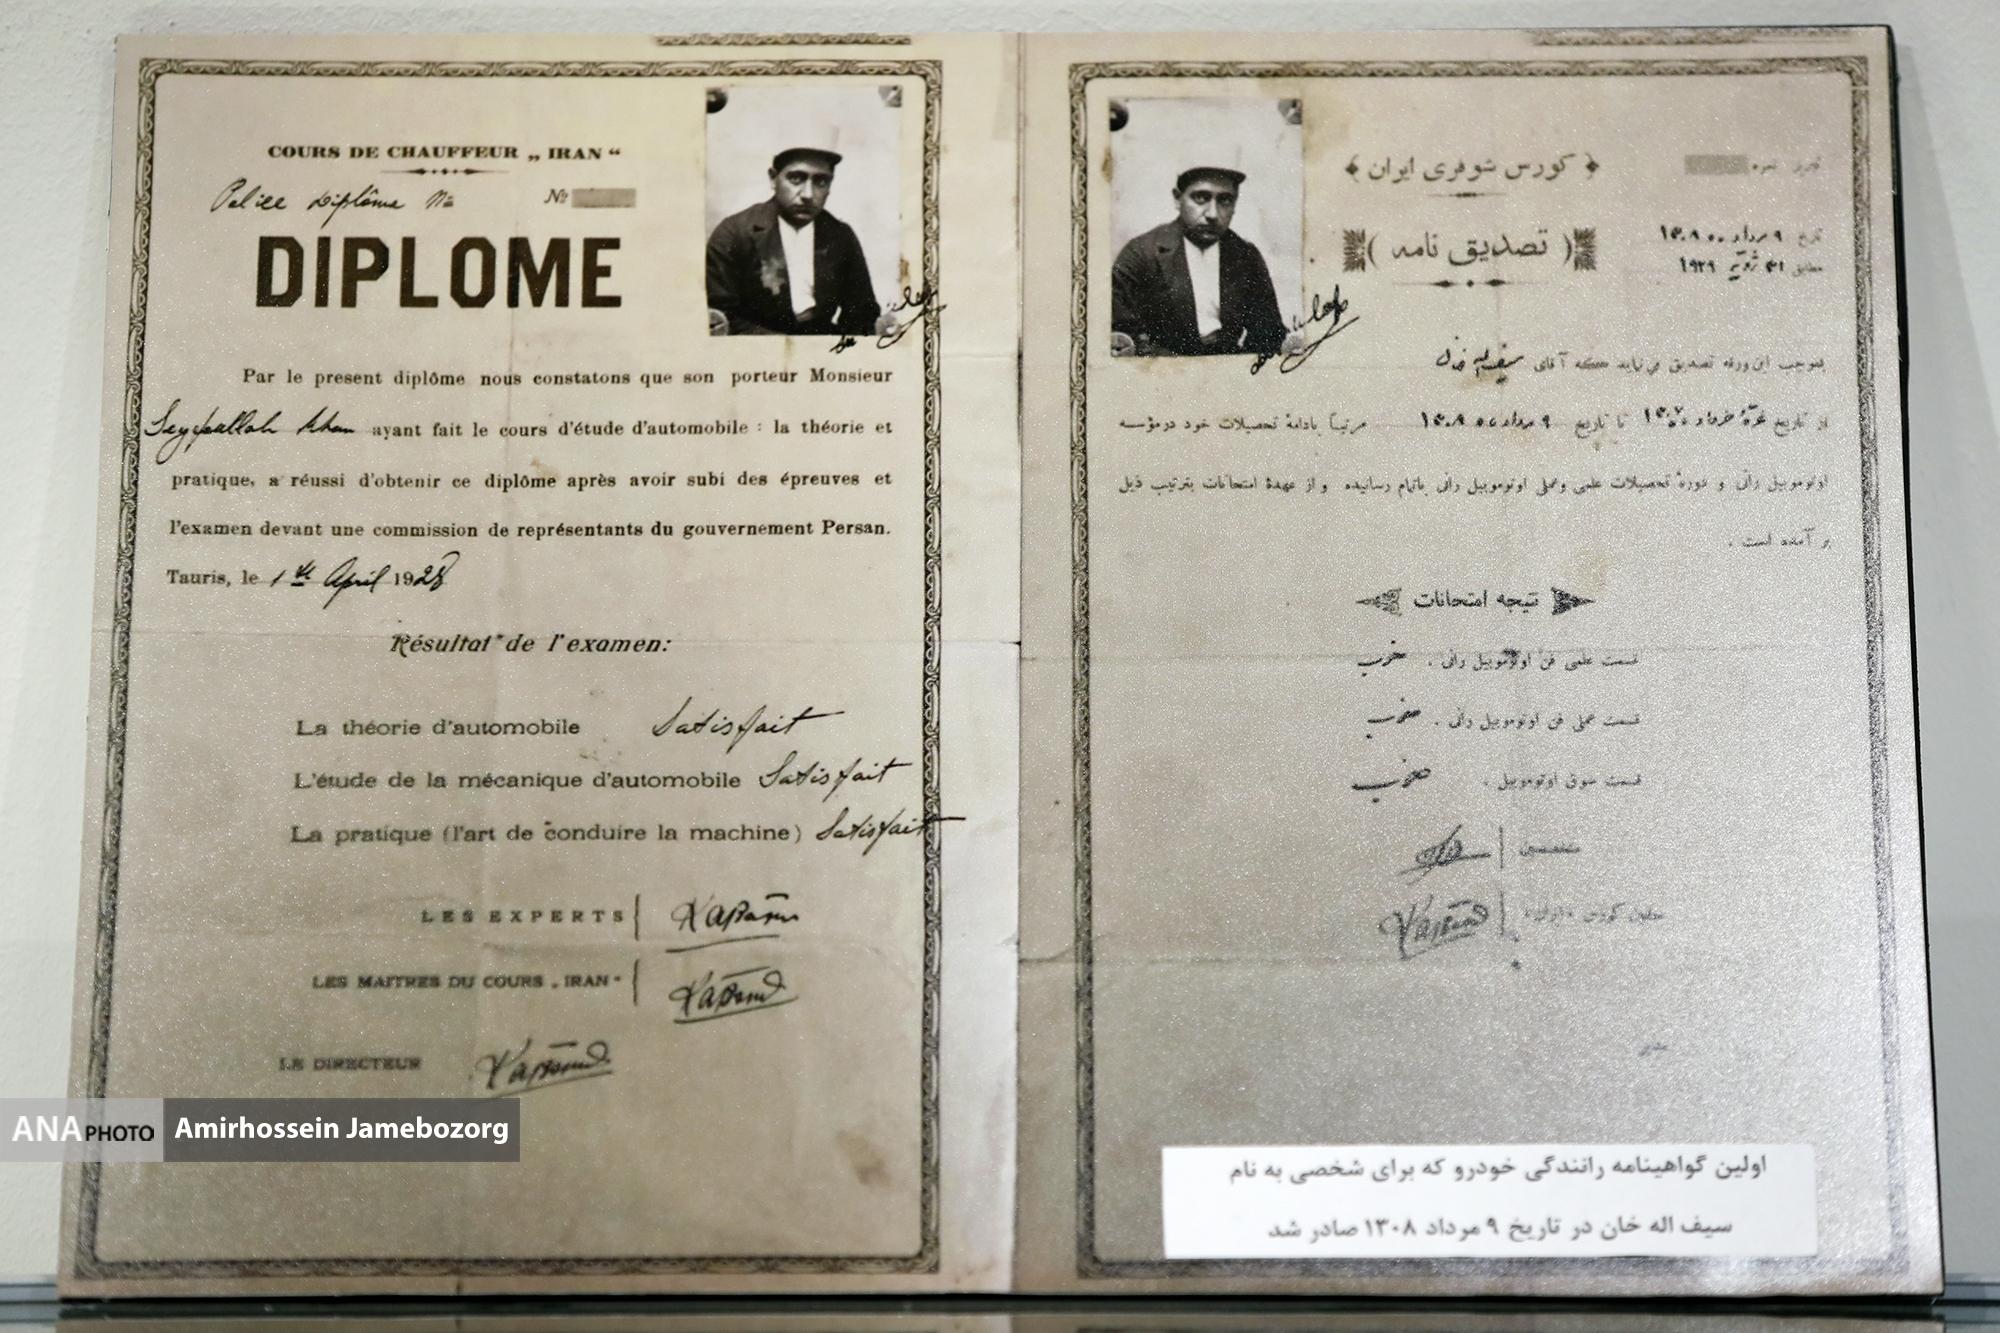 COURS DE CHAUFFEUR „ IRAN “
Police Diplôme No
No
DIPLOME
Par le present diplôme nous constatons que son porteur Monsieur
Seyfoullah Khan ayant fait le cours d'étude d'automobile : la théorie et
pratique, a réussi d'obtenir ce diplôme après avoir subi des épreuves et
l'examen devant une commission de représentants du gouvernement Persan.
Tauris, le 1st April 1928
Résultat de l'examen:
La théorie d'automobile Satisfait
L'étude de la mécanique d'automobile Satisfait
La pratique (l'art de conduire la machine) Satisfait
LES EXPERTS
LES MAITRES DU COURS „ IRAN “
LE DIRECTEUR
نمره
کورس شوفری ایران
تاریخ ۹ مرداد ۱۳۰۸
مطابق ۳۱ ژویه ۱۹۲۹
( تصدیق نامه )
بموجب این ورقه تصدیق می نماید که آقای سیف الله خان
از تاریخ غره خرداد تا تاریخ ۹ مرداد ۱۳۰۸ مرتباً بادامهٔ تحصیلات خود در مؤسسه
اوتوموبیل رانی و دورهٔ تحصیلات علمی وعملی اوتوموبیل رانی باتمام رسانیده و از عهدهٔ امتحانات بترتیب ذیل
بر آمده است .
نتیجه امتحانات
قسمت علمی فن اوتوموبیل رانی . خوب
قسمت عملی فن اوتوموبیل رانی . خوب
قسمت سوق اوتوموبیل . خوب
معلمین کورس «ایران»
مدیر
اولین گواهینامه رانندگی خودرو که برای شخصی به نام
سیف اله خان در تاریخ ۹ مرداد ۱۳۰۸ صادر شد
ANA PHOTO Amirhossein Jamebozorg